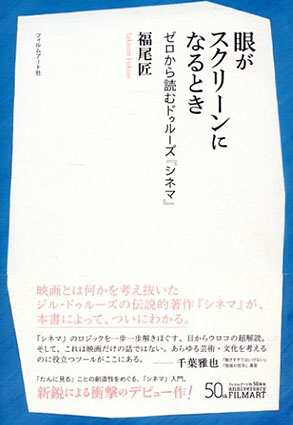 眼が
スクリーンに
なるとき
ゼロから読むドゥルーズ『シネマ』
福尾匠
Takumi Fukuo
フィルムアート社
映画とは何かを考え抜いた
ジル・ドゥルーズの伝説的著作『シネマ』が、
本書によって、ついにわかる。
『シネマ』のロジックを一歩一歩解きほぐす、目からウロコの超解説。
そして、これは映画だけの話ではない。あらゆる芸術・文化を考える
のに役立つツールがここにある。
——千葉雅也
『動きすぎてはいけない』
『勉強の哲学』著者
「たんに見る」ことの創造性をめぐる、『シネマ』入門。
新鋭による衝撃のデビュー作！
フィルムアート社 50周年
50th anniversary
FILMART